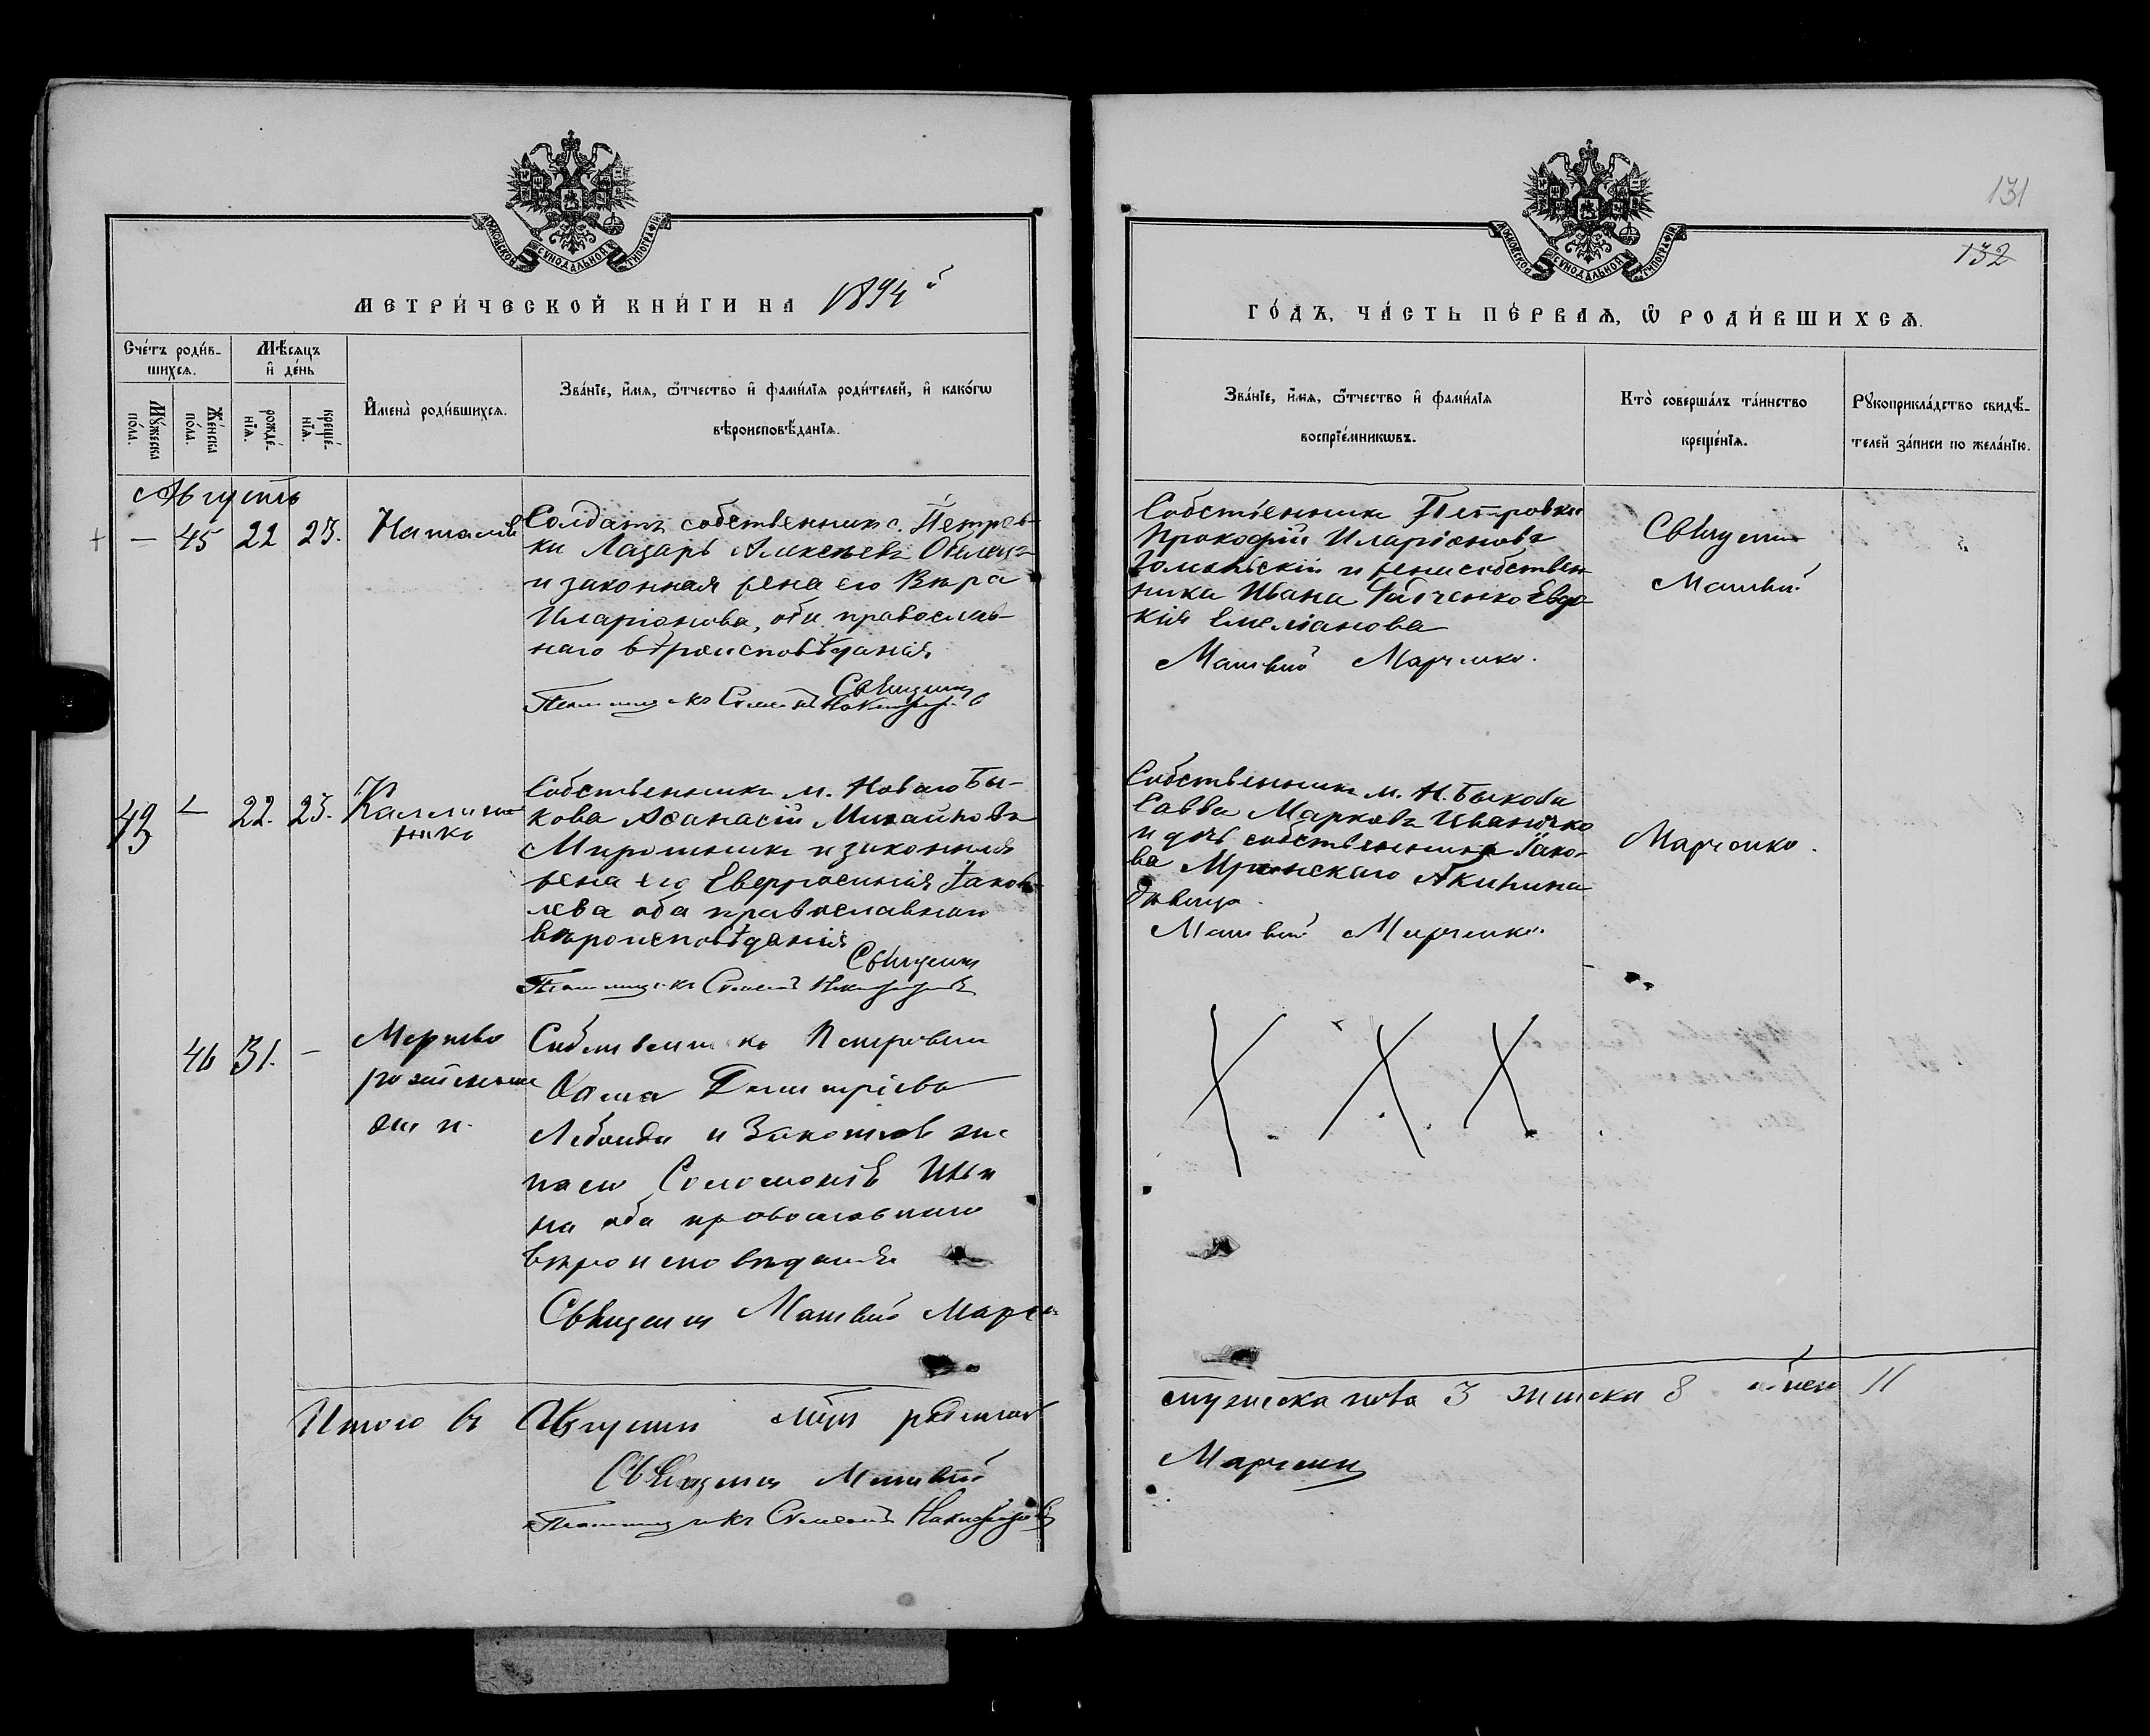 131
132
МОСКОВСКОЙ СѴНОДАЛЬНОЙ ТИПОГРАФІИ
МЕТРИ́ЧЕСКОЙ КНИ́ГИ НА 1894 й
Сче́тъ роди́в-
шихсѧ.
Мѣ́сѧцъ
и҆ де́нь
Мꙋ́жеска
по́ла.
Же́нска
по́ла.
рожде́-
нїѧ.
креще́-
нїѧ.
И҆мена̀ роди́вшихсѧ.
Зва́нїе, и҆́мѧ, ѻ҆́тчество и҆ фами́лїѧ роди́телей, и҆ како́гѡ
вѣроисповѣ́данїѧ.
Августъ
— 45 22 23. Наталія
Солдатъ собственникъ с. Петров-
ки Лазарь Алексѣевъ
и законная жена его Вѣра
Иларіонова, оба православ-
наго вѣроисповѣданія
Священникъ
Псаломщикъ Симеонъ Никифоровъ
43 — 22. 23. Каллин-
никъ
Собственникъ м. Новаго Бы-
кова Аѳанасій Михайловъ
Мирошникъ и законная
жена его Евфросинія Іаков-
лева оба православнаго
вѣроисповѣданія
Священникъ
Псаломщикъ Симеонъ Никифоровъ
46 31. — Мертво
рожденная
Собственникъ Петровки
Ѳома Димитріевъ
и Законная же
на его Соломонія
на оба православнаго
вѣроисповѣданія
Священникъ Матвій Марче
Итого въ Августѣ мцѣ родилось
Священникъ Матвій
Псаломщикъ Симеонъ Никифоровъ
МОСКОВСКОЙ СѴНОДАЛЬНОЙ ТИПОГРАФІИ
ГО́ДЪ, ЧА́СТЬ ПЕ́РВАѦ, Ѡ҆ РОДИ́ВШИХСѦ.
Зва́нїе, и҆́мѧ, ѻ҆́тчество и҆ фами́лїѧ
воспрїе́мникѡвъ.
Кто̀ соверша́лъ та́инство
креще́нїѧ.
Рꙋкоприкла́дство свидѣ́-
телей за́писи по жела́нїю.
Собственникъ Петровки
Прокофій Иларіоновъ
и жена собствен-
ника Ивана Евдо-
кія Емеліанова
Матвій Марченко.
Священникъ
Матвій
Собственникъ м. Н. Быкова
Савва Марковъ Иваночко
и дочь собственника Іако-
ва Мринскаго Акилина
дѣвица.
Матвій Марченко
Марченко.
мужеска пола 3 женска 8 обоего 11
Марченко